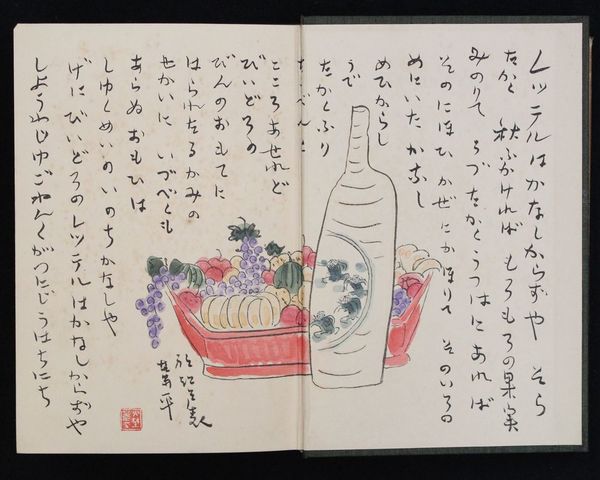 レツテルはかなしからずや そら
たかく 秋ふかければ もろもろの果実
みのりて うづたかくうつはにあれば
そのにほひ かぜにかほりて そのいろの
めにいたかなし
めひからし
うで
たかくふり
こころあせれど
びいどろの
びんのおもてに
はられたるかみの
せかいに いづべくも
あらぬ おもひは
しゆくめいのいのちかなしや
げに びいどろのレツテルはかなしからずや
しようわじゆごねんくがつにじうはちにち